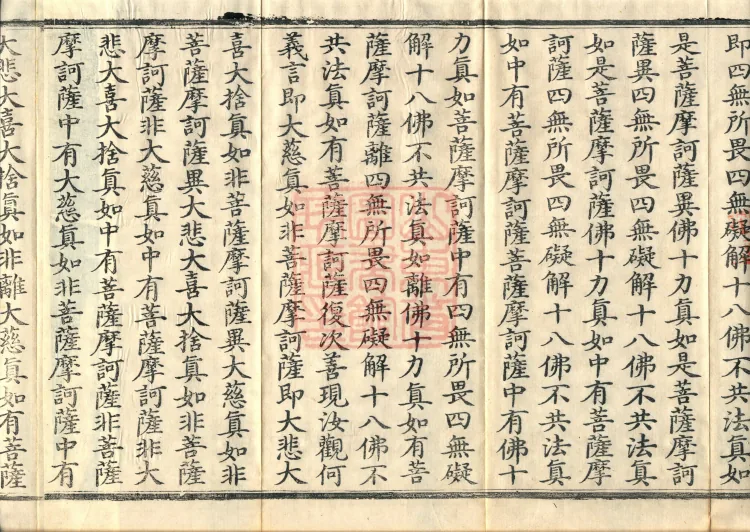 即四無所畏四無礙解十八佛不共法真如
是菩薩摩訶薩異佛十力真如是菩薩摩訶
薩異四無所畏四無礙解十八佛不共法真
如是菩薩摩訶薩佛十力真如中有菩薩摩
訶薩四無所畏四無礙解十八佛不共法真
如中有菩薩摩訶薩菩薩摩訶薩中有佛十
力真如菩薩摩訶薩中有四無所畏四無礙
解十八佛不共法真如離佛十力真如有菩
薩摩訶薩離四無所畏四無礙解十八佛不
共法真如有菩薩摩訶薩復次善現汝觀何
義言即大慈真如非菩薩摩訶薩即大悲大
喜大捨真如非菩薩摩訶薩異大慈真如非
菩薩摩訶薩異大悲大喜大捨真如非菩薩
摩訶薩非大慈真如中有菩薩摩訶薩非大
悲大喜大捨真如中有菩薩摩訶薩非菩薩
摩訶薩中有大慈真如非菩薩摩訶薩中有
大悲大喜大捨真如非離大慈真如有菩薩